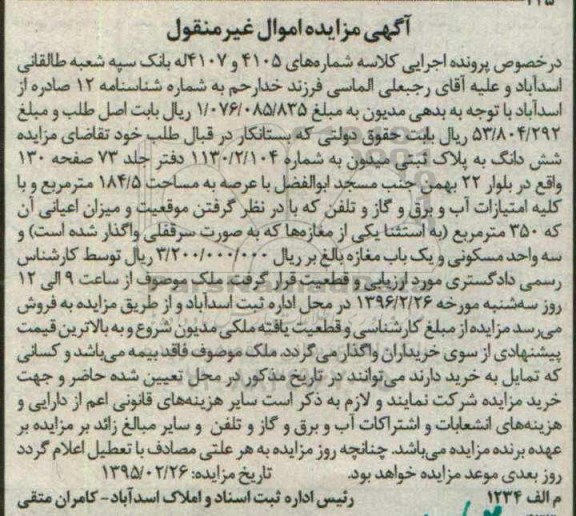 آگهی مزایده اموال غیر منقول
درخصوص پرونده اجرایی کلاسه شماره‌های ۴۱۰۵ و ۴۱۰۷ له بانک سپه شعبه طالقانی
اسدآباد و علیه آقای رجبعلی الماسی فرزند خدارحم به شماره شناسنامه ۱۲ صادره از
اسدآباد با توجه به بدهی مدیون به مبلغ ۱/۰۷۶/۰۸۵/۸۳۵ ریال بابت اصل طلب و مبلغ
۵۳/۸۰۴/۲۹۲ ریال بابت حقوق دولتی که بستانکار در قبال طلب خود تقاضای مزایده
شش دانگ به پلاک ثبتی میدون به شماره ۱۱۳۰/۲/۱۰۴ دفتر جلد ۷۳ صفحه ۱۳۰
واقع در بلوار ۲۲ بهمن جنب مسجد ابوالفضل با عرصه به مساحت ۱۸۴/۵ مترمربع و با
کلیه امتیازات آب و برق و گاز و تلفن که با در نظر گرفتن موقعیت و میزان اعیانی آن
که ۳۵۰ مترمربع (به استثنا یکی از مغازه‌ها که به صورت سرقفلی واگذار شده است) و
سه واحد مسکونی و یک باب مغازه بالغ بر ریال ۳/۲۰۰/۰۰۰/۰۰۰ ریال توسط کارشناس
رسمی دادگستری مورد ارزیابی و قطعیت قرار گرفت. ملک موصوف از ساعت ۹ الی ۱۲
روز سه‌شنبه مورخه ۱۳۹۶/۲/۲۶ در محل اداره ثبت اسدآباد و از طریق مزایده به فروش
می‌رسد مزایده از مبلغ کارشناسی و قطعیت یافته ملکی مدیون شروع و به بالاترین قیمت
پیشنهادی از سوی خریداران واگذار می‌گردد. ملک موصوف فاقد بیمه می‌باشد و کسانی
که تمایل به خرید دارند می‌توانند در تاریخ مذکور در محل تعیین شده حاضر و جهت
خرید مزایده شرکت نمایند و لازم به ذکر است سایر هزینه‌های قانونی اعم از دارایی و
هزینه‌های انشعابات و اشتراکات آب و برق و گاز و تلفن و سایر مبالغ زائد بر مزایده بر
عهده برنده مزایده می‌باشد. چنانچه روز مزایده به هر علتی مصادف با تعطیل اعلام گردد
روز بعدی موعد مزایده خواهد بود. تاریخ مزایده: ۱۳۹۵/۰۲/۲۶
م الف ۱۲۳۴ رئیس اداره ثبت اسناد و املاک اسدآباد- کامران متقی